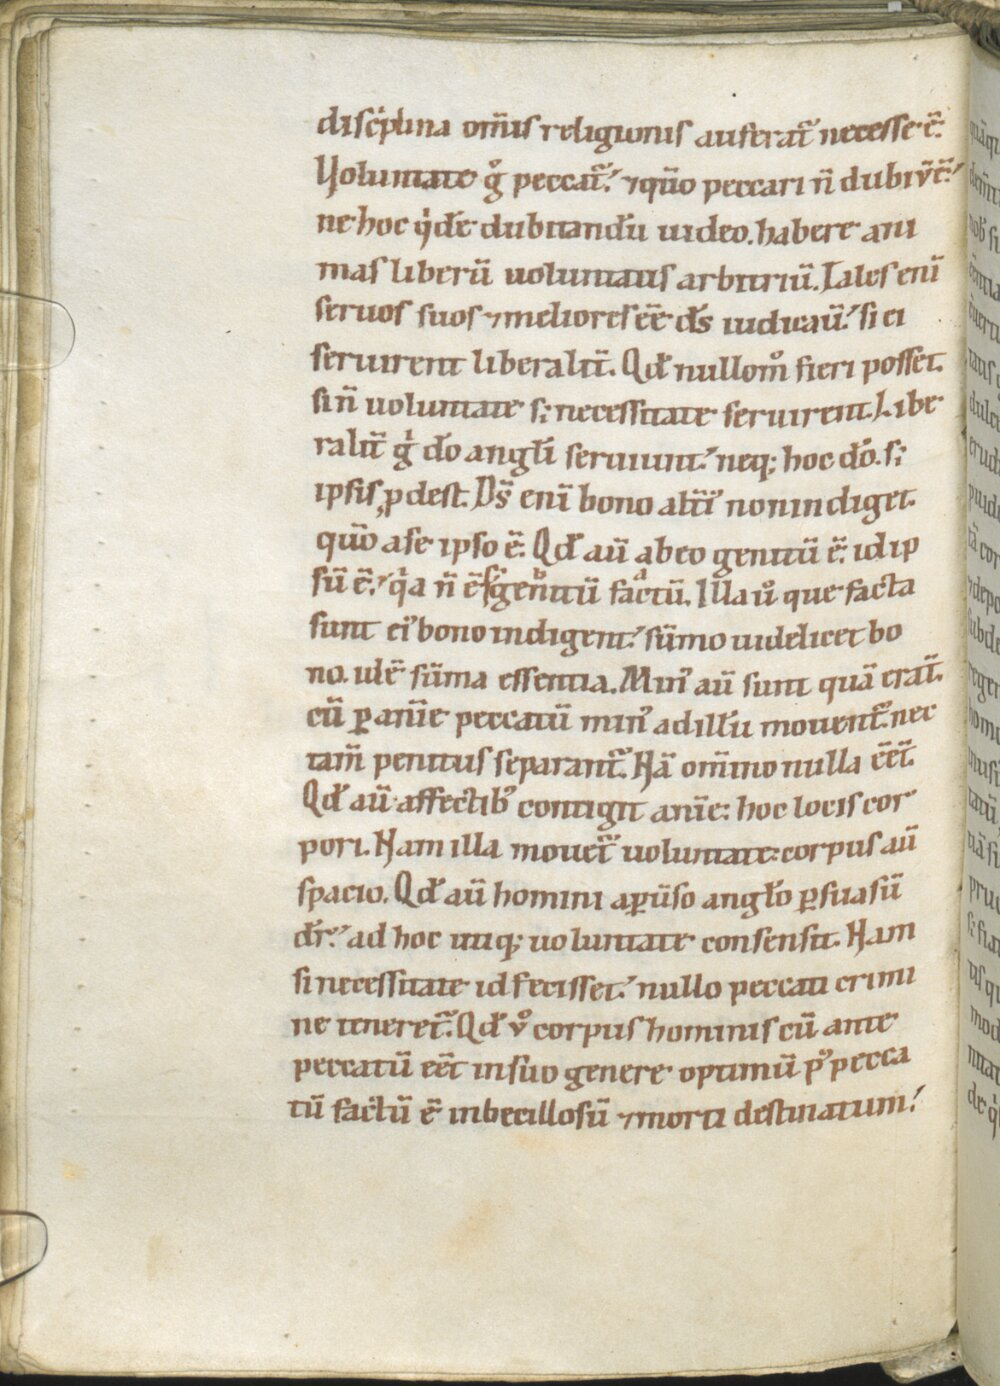 discip̄lina om̄is religionis auferat᷑ necesse ē.
Voluntate gͦ peccat᷑. ⁊ qūo peccari n̄ dubiū ē.
ne hoc qͥdē dubitandū uideo. habere ani
mas liberū uoluntatis arbitriū. Tales eni̅
seruos suos ⁊ meliores ēē ds̄ iudicauͥ. si ei
seruirent liberalit̄. Qd̄ nullom̊ fieri posset.
si n̄ uoluntate s; necessitate seruirent. Libe
ralit̄ gͥ dō angl̄i seruiunt. neq; hoc dō. s;
ipsis ꝓdest. Ds̄ eni̅ bono alti᷑ non indiget.
qūo a se ipso ē. Qd̄ aū ab eo genitū ē. id ip
sū ē. qͥa n̄ ē sꝫ genitū factū. Illa ů que facta
sunt eiꝰ bono indigent. sūmo uidelicet bo
no. id ē sūma essentia. Minꝰ aū sunt quā erāt.
cū ꝑ anīe peccatū minꝰ ad illū mouent᷑. nec
tam̄ penitus separant᷑. Nā om̄ino nulla ēēt.
Qd̄ aū affectibꝰ contigit anīe: hoc locis cor
pori. Nam illa mouet᷑ uoluntate: corpus aū
spacio. Qd̄ aū homini a ꝑūso anglo ꝑsuasū
dr̄. ad hoc utiq; uoluntate consensit. Nam
si necessitate id fecisset. nullo peccati crimi
ne teneret᷑. Qd̄ v̊ corpus hominis cū ante
peccatū ēēt in suo genere optimū pꝰ pecca
tū factū ē inbecillosū ⁊ morti destinatum.